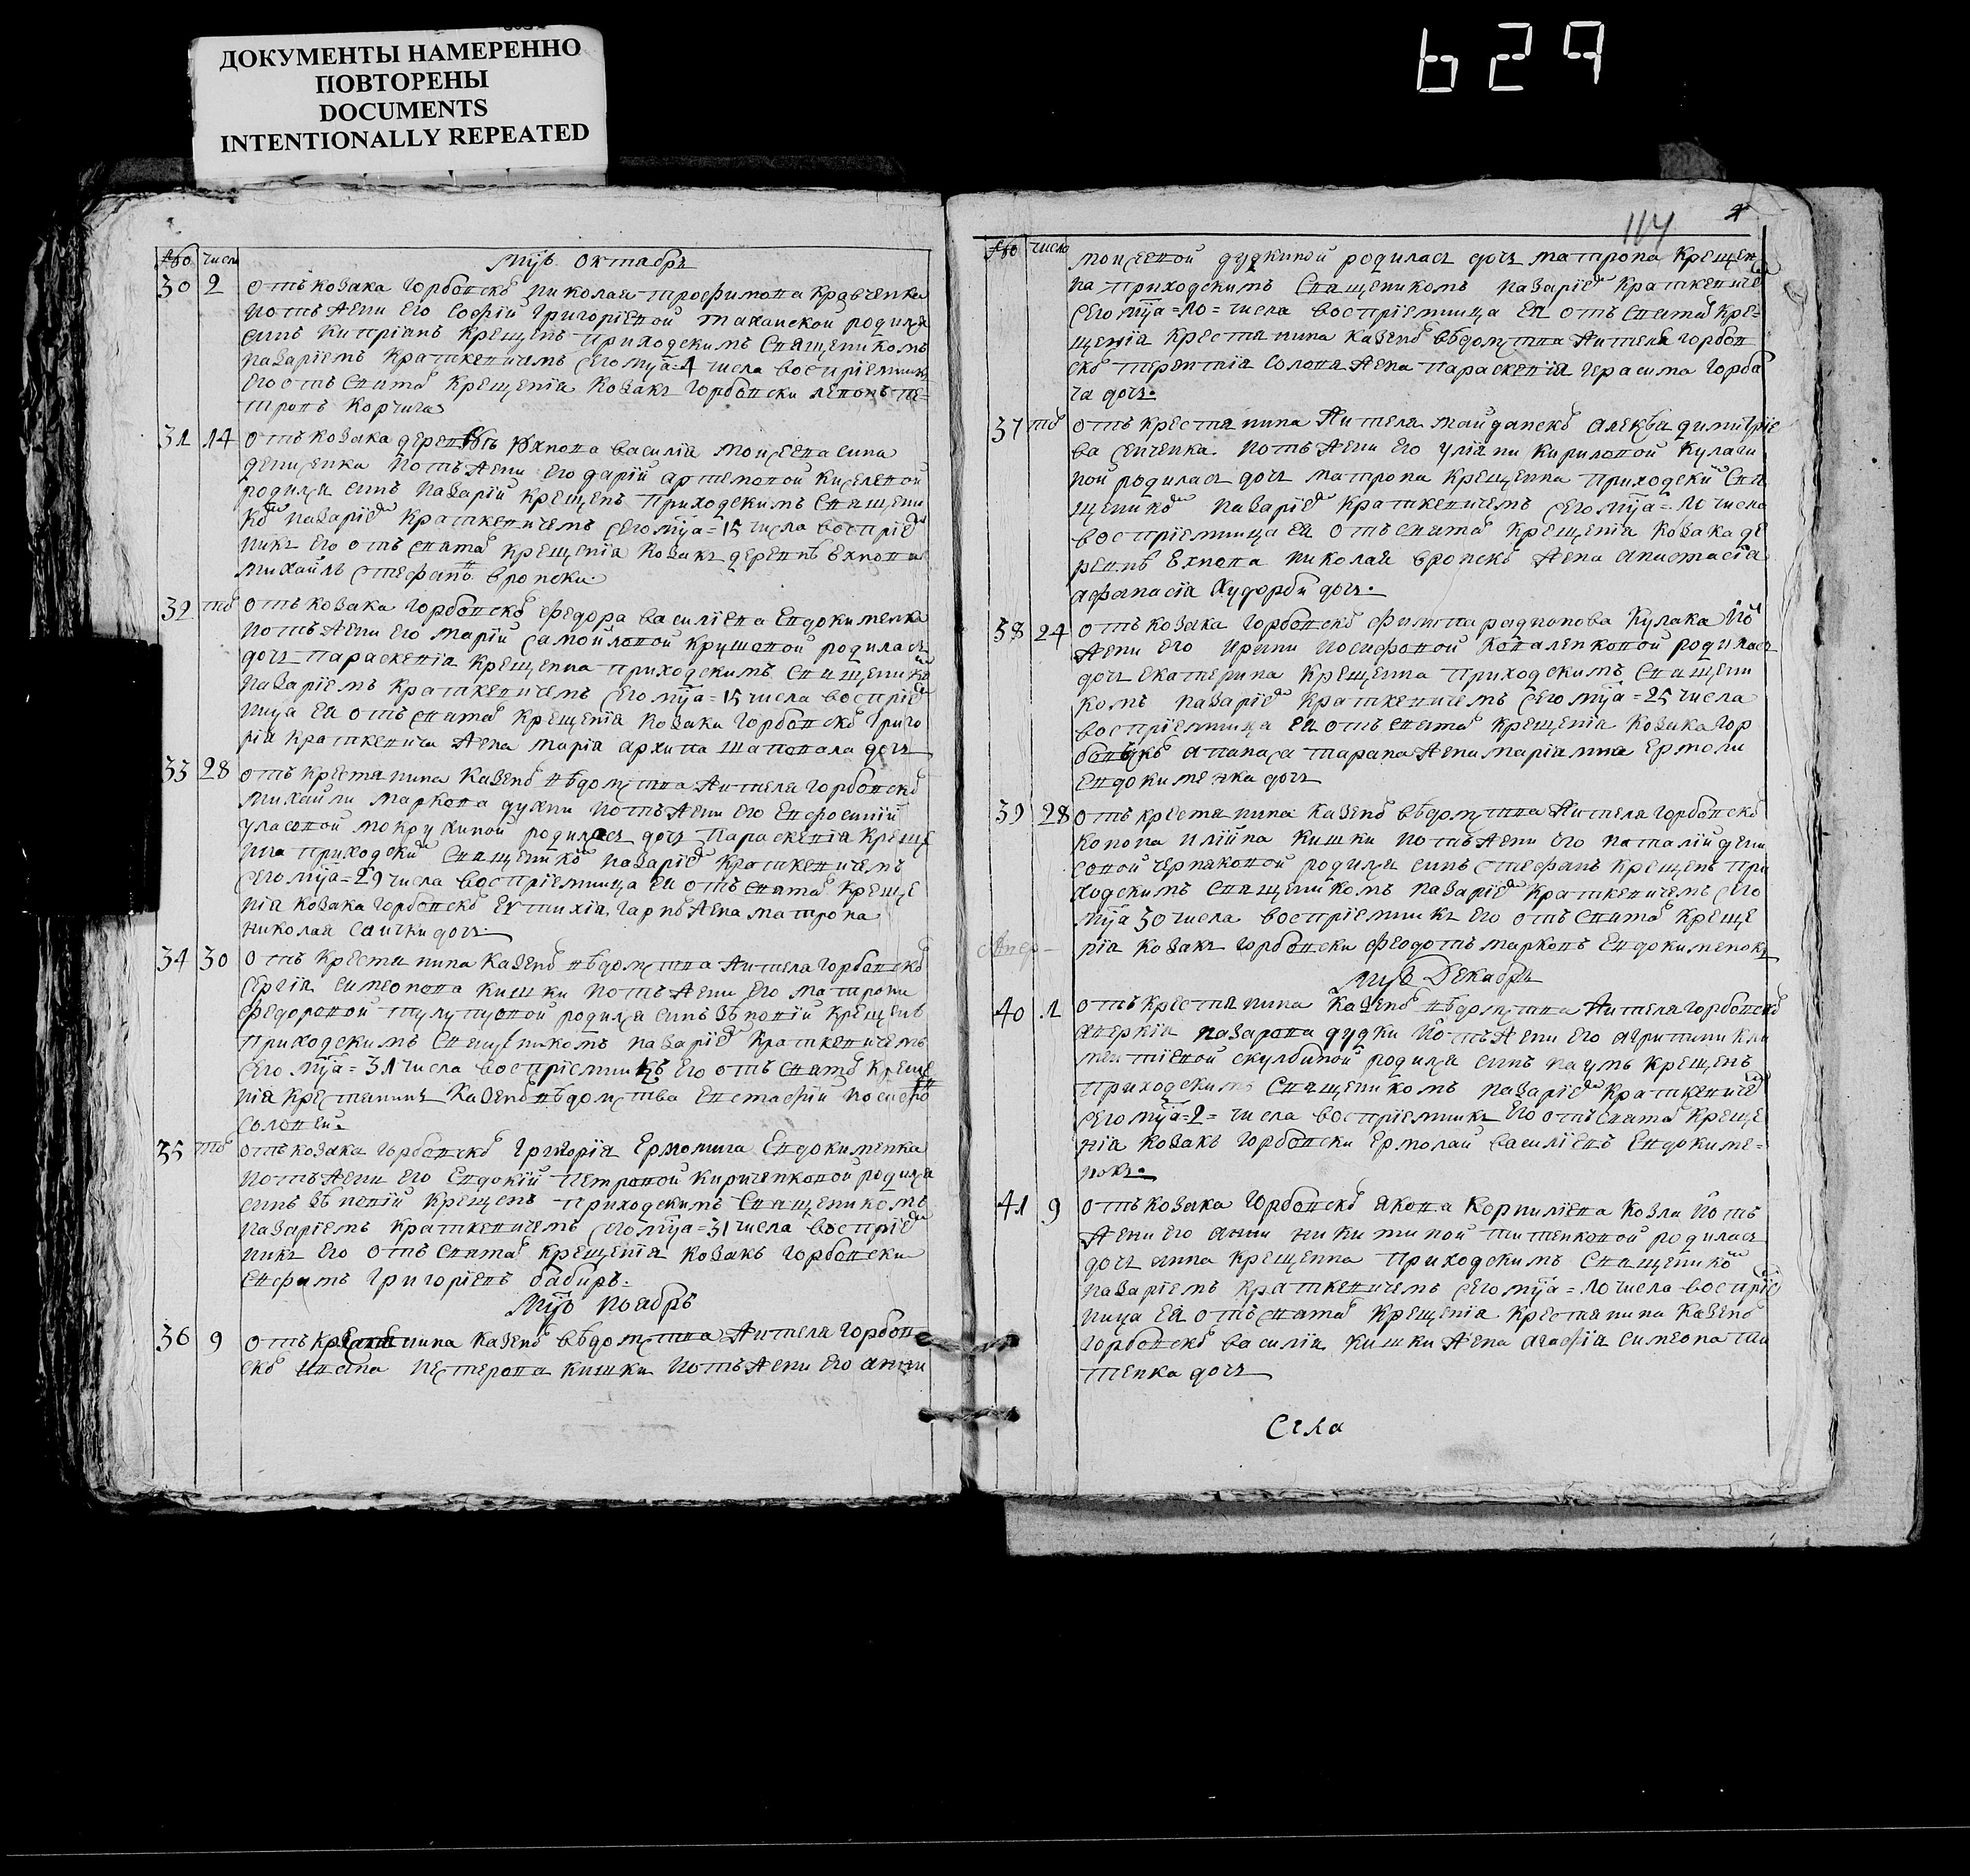 ДОКУМЕНТЫ НАМЕРЕННО
ПОВТОРЕНЫ
DOCUMENTS
INTENTIONALLY REPEATED
629
114
№ числ
мцъ октябръ
30 2 отъ козака горбовско николая трофимова кравченка
и отъ жени его софіи григоріевой таханской родился
синъ кипріанъ крещенъ приходскимъ священикомъ
назаріемъ краткевичемъ сего мца 4 числа воспріемникъ
его отъ святаго крещенія козакъ горбовски леонъ пе-
тровъ корчига
31 14 отъ козака деревнѣ Юхнова василія моисеева сина
денисенка и отъ жени его даріи артемовой киселевой
родился синъ назарій крещенъ приходскимъ священи
комъ назаріемъ краткевичемъ сего мца = 15 числа воспріем
никъ его отъ святаго крещенія козакъ деревнѣ Ехнова
михаилъ стефановъ вронски
32 то отъ козака горбовско федора василіева евдокименка
и отъ жени его маріи самойловой крушовой родилась
дочъ параскевія крещенна приходскимъ священико
назаріемъ краткевичемъ сего мца = 15 числа воспріем
ница ея отъ святаго крещенія козака горбовско григо
рія краткевича жена марія архипа шаповала дочъ
33 28 отъ крестянина казенно вѣдомства жителя горбовско
михаили маркова духни и отъ жени его евфросиніи
уласовой мокрухиной родилася дочъ параскевія креще
нна приходски священико назаріем краткевичемъ
сего мца = 29 числа воспріемница ея отъ святаго креще
нія козака горбовско евтихія жена матрона
николая саички дочъ
34 30 отъ крестянина казенно вѣдомства жителя горбовско
сергія симеонова кишки и отъ жени его матрони
федоровой тулуповой родился синъ зѣновій крещенъ
приходскимъ священикомъ назаріем краткевичемъ
сего мца = 31 числа воспріемникъ его отъ свято креще
нія крестянинъ казенно вѣдомства евстафій иосифо
соловей
35 то отъ козака горбовско григорія ермолича евдокименка
и отъ жени его евдокіи петровой кириченковой родился
синъ зѣновій крещенъ приходскимъ священикомъ
назаріемъ краткевичемъ сего мца = 31 числа воспріем
никъ его отъ святаго крещенія козакъ горбовски
евфимъ григоріевъ бабиръ
Мцъ ноябръ
36 9 отъ крестянина казенно вѣдомства жителя горбов
ско ивана нестерова кишки и отъ жени его анни
№ число
моисеевой дудкиной родилась дочъ матрона крещен
на приходскимъ священикомъ назаріем краткевиче
сего мца = 10 = числа воспріемница ея отъ святаго кре-
щенія крестянина казенно вѣдомства жителя горбов
ско терентія солопа жена параскевія герасима горба
ча дочъ
37 то отъ крестянина жителя майданско алексѣя димитріе
ва сенченка и отъ жени его уліяни кириловой кулаги
ной родилась дочъ матрона крещенна приходски свя
щенико назаріем краткевичемъ сего мца = 10 числа
воспріемница ея отъ святаго крещенія козака де
ревнѣ Ехнова николая вронско жена анастасія
афанасія худорби дочъ
38 24 отъ козака горбовско филипа радионова кулака и отъ
жени его ирини иосифовой коваленковой родилась
дочъ екатерина крещенна приходскимъ священи
комъ назаріем краткевичемъ сего мца = 25 числа
воспріемница ея отъ святаго крещенія козака гор
бовско апанаса тарана жена маріанна ермоли
евдокименка дочъ
39 28 отъ крестянина казенно вѣдомства жителя горбовско
конона иліина кишки и отъ жени его наталіи дени
совой черняковой родился синъ стефанъ крещенъ при
ходскимъ священикомъ назаріем краткевичемъ сего
мца 30 числа воспріемникъ его отъ святаго креще
нія козакъ горбовски феодотъ марковъ евдокименокъ
Мцъ Декабръ
40 1 отъ крестянина казенно вѣдомства жителя горбовско
аверкія назарова дудки и отъ жени его агрипини кли
ментіевой скулбиной родился синъ наумъ крещенъ
приходскимъ священикомъ назаріем краткевиче
сего мца = 2 = числа воспріемникъ его отъ святаго креще
нія козакъ горбовски ермолай василіевъ евдокиме-
нокъ
41 9 отъ козака горбовско якова корниліева козла и отъ
жени его анни никитиной титенковой родилась
дочъ анна крещенна приходскимъ священико
назаріемъ краткевичемъ сего мца = 10 числа воспріе
ница ея отъ святаго крещенія крестянина казенно
горбовско василія кишки жена агафія симеона ти
тенка дочъ
Села